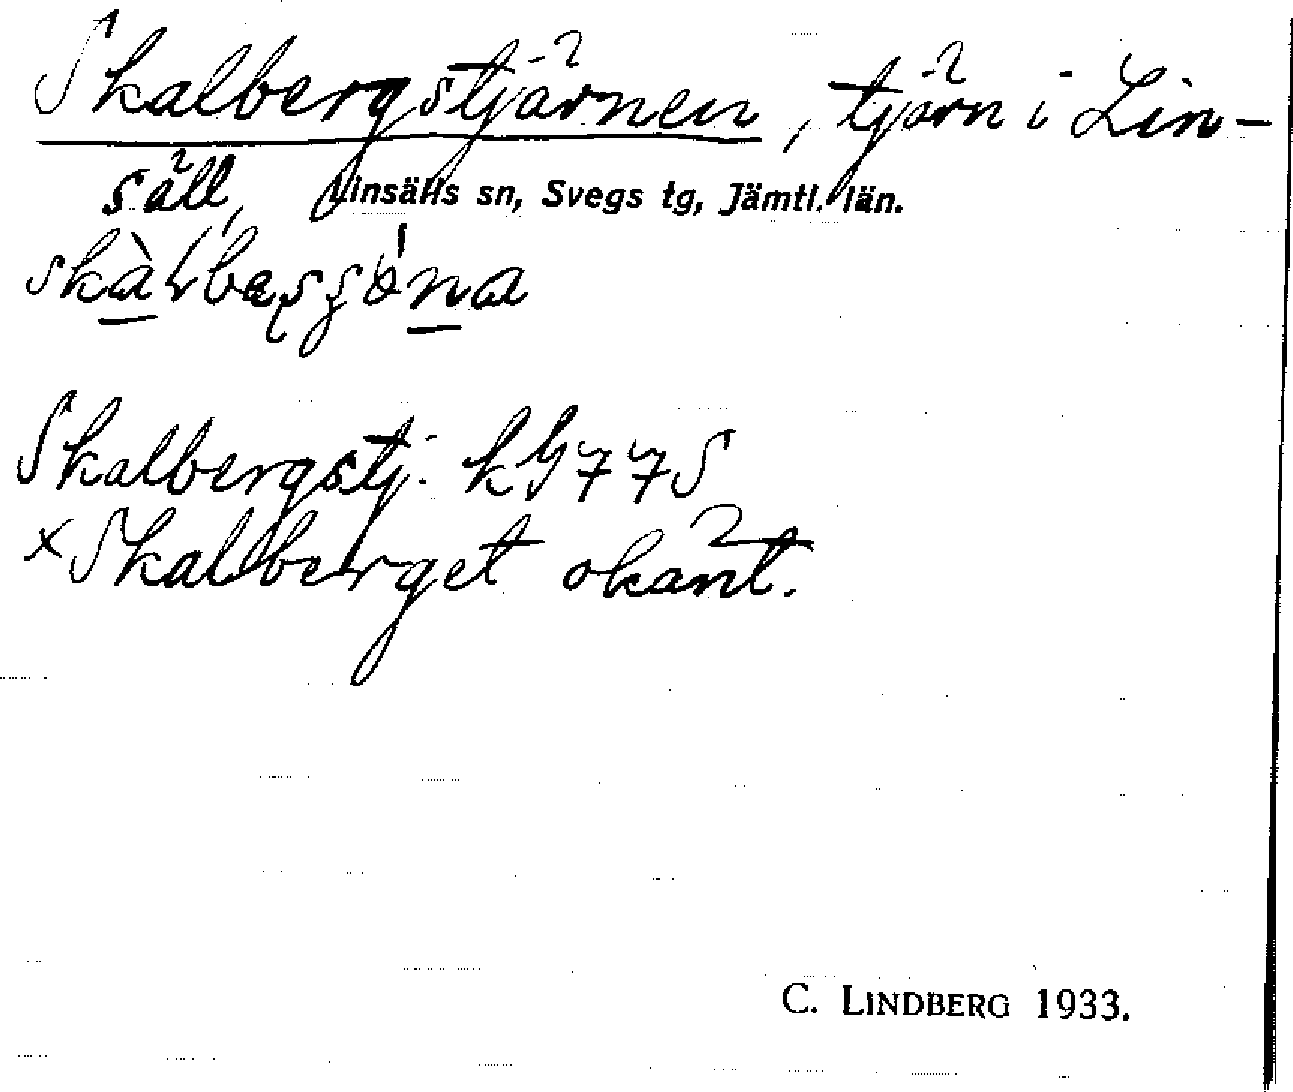 Skalbergstjärnen, tjärn i Lin-
säll,
Linsälls sn, Svegs tg, Jämtl. län.
Skalbergstj. kG77S
× Skalberget okänt.
C. LINDBERG 1933.